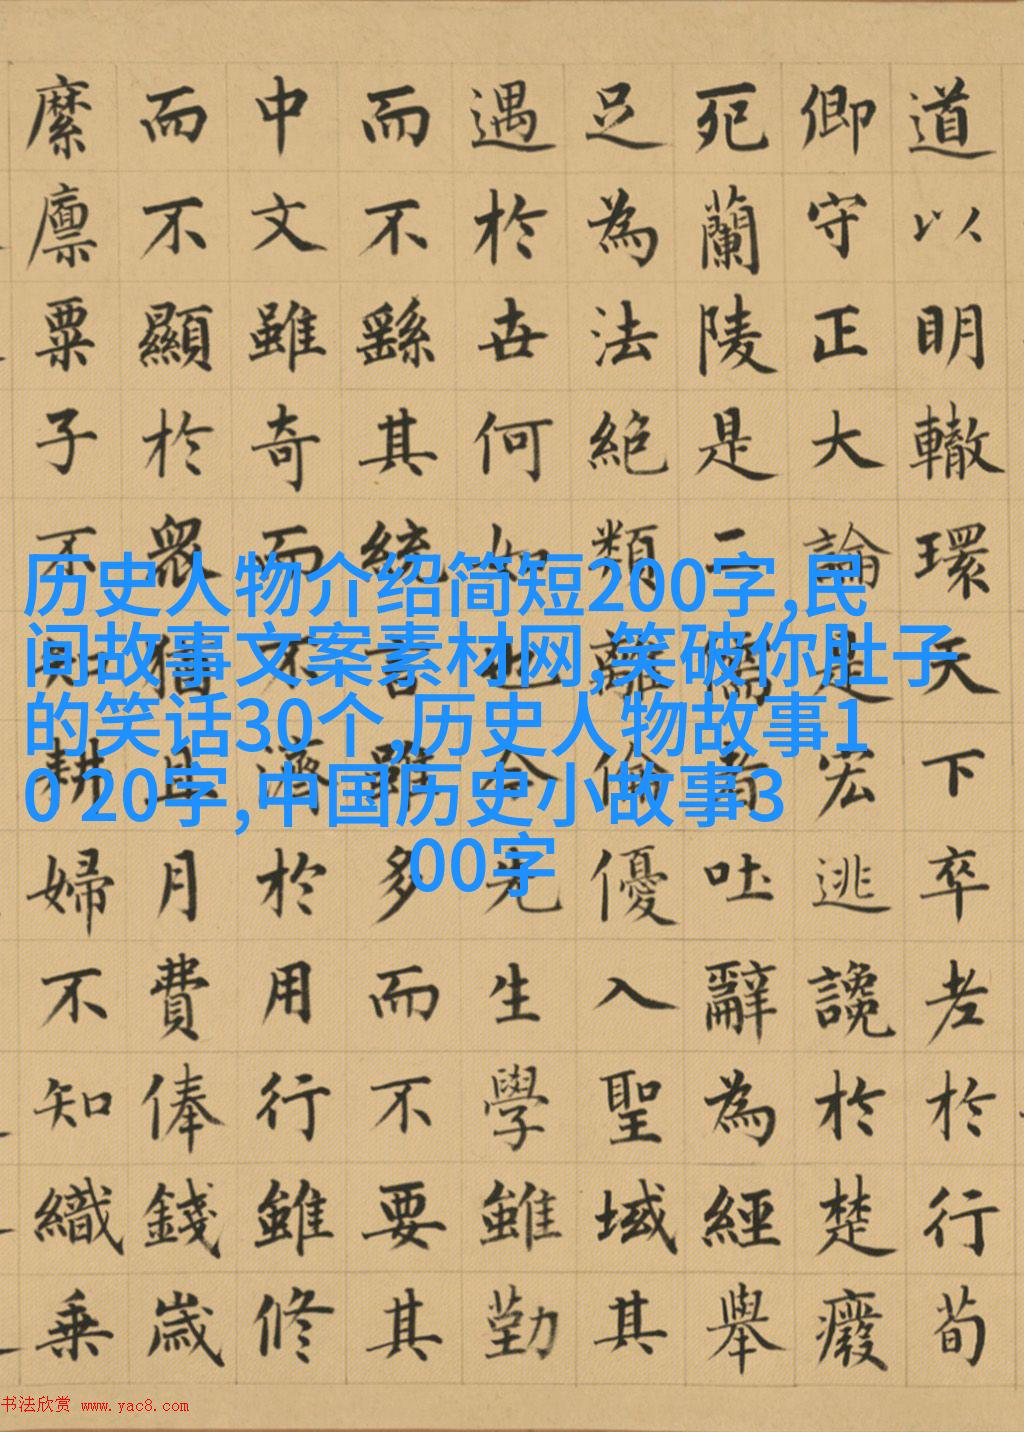 道以明轍環天下卒老於行荀
卿守正大論是宏逃讒於楚癈
死蘭陵是二儒者吐辭為經舉
足為法絕類離倫優入聖域其
遇於世何如也今先生學雖勤
而不繇其統言雖多而不要其
中文雖奇而不濟於用行雖修
而不顯於眾猶且月費俸錢歲
縻廩粟子不知耕婦不知織乗
历史人物介绍简短200字,民
间故事文案素材网,笑破你肚子
的笑话30个,历史人物故事1
0 20字,中国历史小故事3
00字
书法欣赏 www.yac8.com